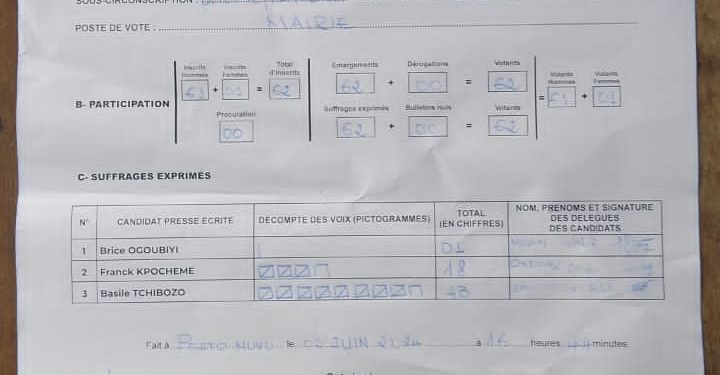 POSTE DE VOTE : MAIRIE
Inscrits Hommes Inscrits Femmes Total d'Inscrits Emargements Dérogations Votants Votants Hommes Votants Femmes
B- PARTICIPATION 61 + 01 = 62 62 + 00 = 62 = 61 + 01
Procuration Suffrages exprimés Bulletins nuls Votants
00 62 + 00 = 62
C- SUFFRAGES EXPRIMÉS
N° CANDIDAT PRESSE ÉCRITE DÉCOMPTE DES VOIX (PICTOGRAMMES) TOTAL (EN CHIFFRES) NOM, PRÉNOMS ET SIGNATURE DES DÉLÉGUÉS DES CANDIDATS
1 Brice OGOUBIYI 01
2 Franck KPOCHEME 18
3 Basile TCHIBOZO 43
Fait à PORTO NOVO le JUIN 2024 à 16 heures 44 minutes